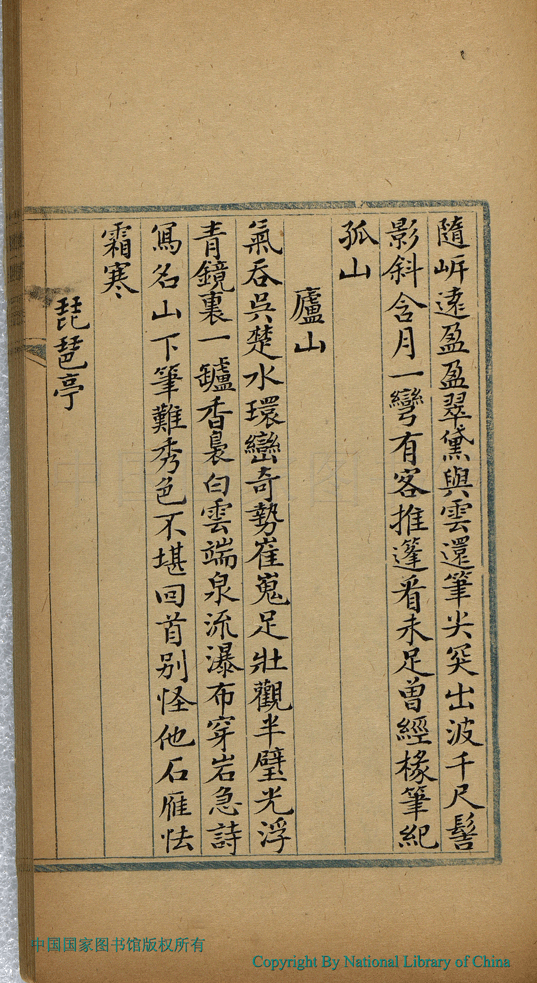 隨㟁遠盈盈翠黛與雲還筆尖突出波千尺髻
影斜含月一彎有客推篷看未足曾經椽筆紀
孤山
廬山
氣吞吳楚水環巒奇勢崔嵬足壯觀半壁光浮
青鏡裏一鑪香裊白雲端泉流瀑布穿岩急詩
寫名山下筆難秀色不堪回首別怪他石雁怯
霜寒
琵琶亭
中国国家图书馆版权所有
Copyright By National Library of China